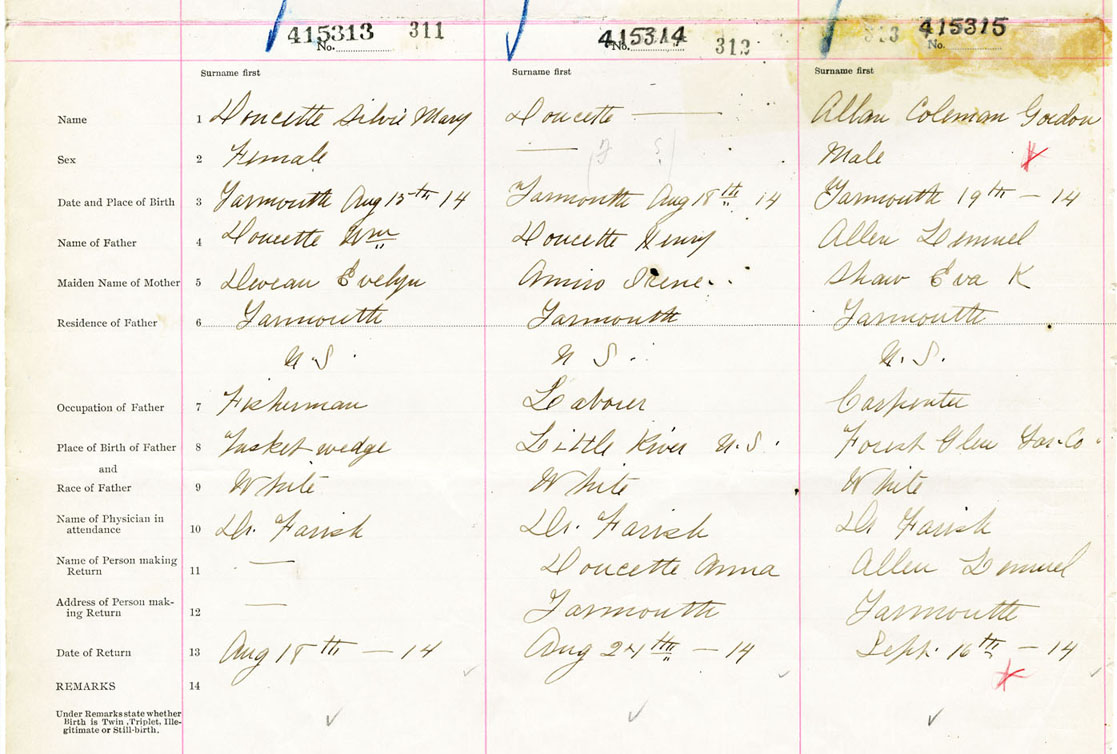 415313 311 415314 312 313 415315
No. No. No.
Surname first Surname first Surname first
Name 1 Doucette Silvie Mary Doucette — Allan Coleman Gordon
Sex 2 Female — Male
Date and Place of Birth 3 Yarmouth Aug 15th 14 Yarmouth Aug 18th 14 Yarmouth 19th – 14
Name of Father 4 Doucette Wm Doucette Henry Allen Lemuel
Maiden Name of Mother 5 Deveau Evelyn Amiro Irene Shaw Eva K
Residence of Father 6 Yarmouth Yarmouth Yarmouth
N. S. N S. N. S.
Occupation of Father 7 Fisherman Laborer Carpenter
Place of Birth of Father 8 Tusket wedge Little River N. S. Forest Glen Yar. Co
and
Race of Father 9 White White White
Name of Physician in
attendance 10 Dr. Farish Dr. Farish Dr Farish
Name of Person making
Return 11 — Doucette Anna Allen Lemuel
Address of Person mak-
ing Return 12 — Yarmouth Yarmouth
Date of Return 13 Aug 18th – 14 Aug 24th – 14 Sept. 16th – 14
REMARKS 14
Under Remarks state whether
Birth is Twin, Triplet, Ille-
gitimate or Still-birth.